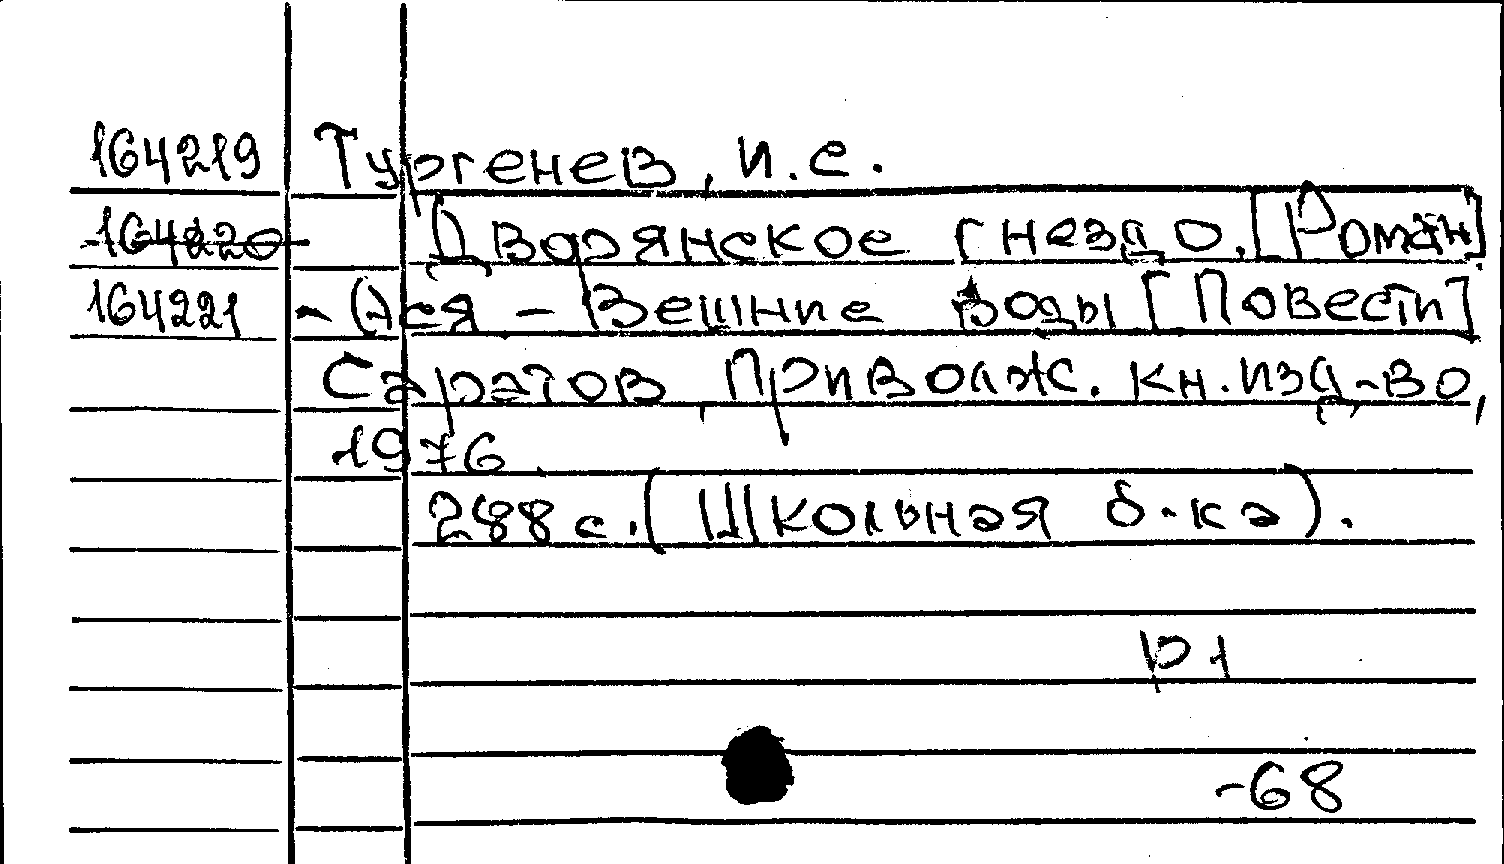 164219 Тургенев, И.С.
164220 Дворянское гнездо. [Роман]
164221 - Ася - Вешние воды [Повести]
Саратов, Приволж. кн. изд-во,
1976.
288 с. (Школьная б-ка).
р1
-68